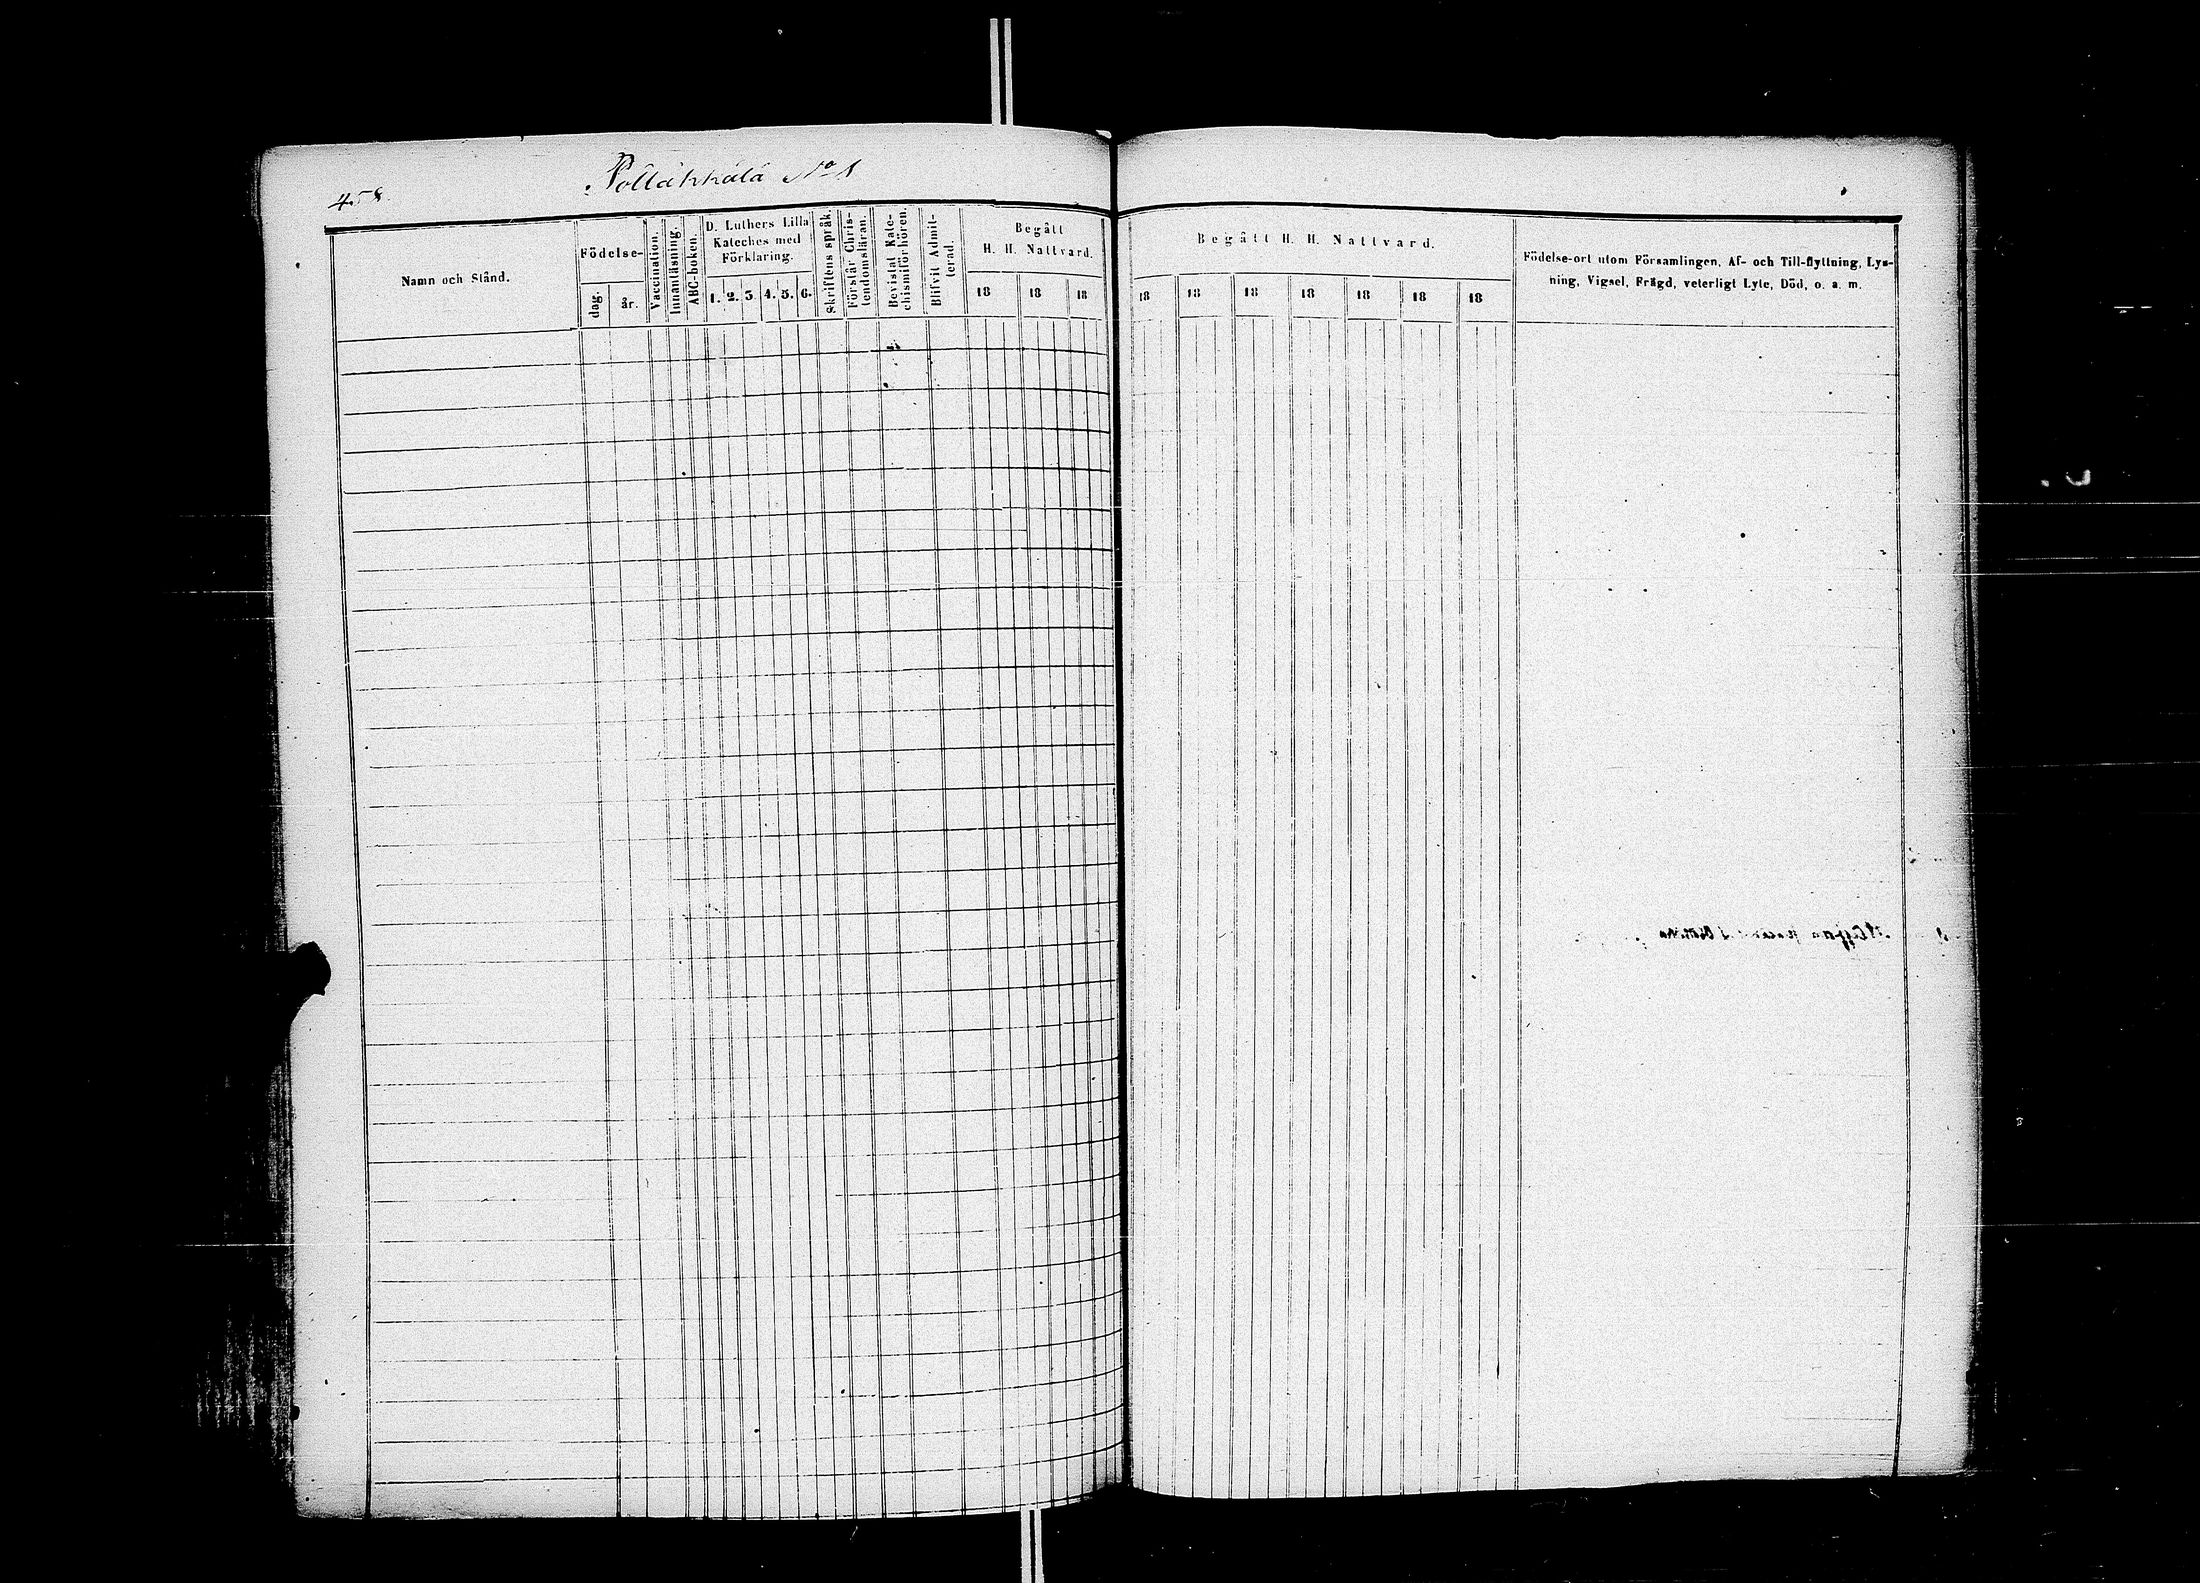 458.
Pölläkkälä No 1
Namn och Stånd.
Födelse-
dag.
år.
Vaccination.
Innanläsning.
ABC-boken.
D. Luthers Lilla
Kateches med
Förklaring.
1. 2. 3. 4. 5. 6.
Skriftens språk.
Förstår Chris-
tendomsläran.
Bevistat Kate-
chismiförhören.
Blifvit Admit-
terad.
Begått
H. H. Nattvard.
18 18 18
Begått H. H. Nattvard.
18 18 18 18 18 18 18
Födelse-ort utom Församlingen, Af- och Till-flyttning, Lys-
ning, Vigsel, Frägd, veterligt Lyte, Död, o. a. m.